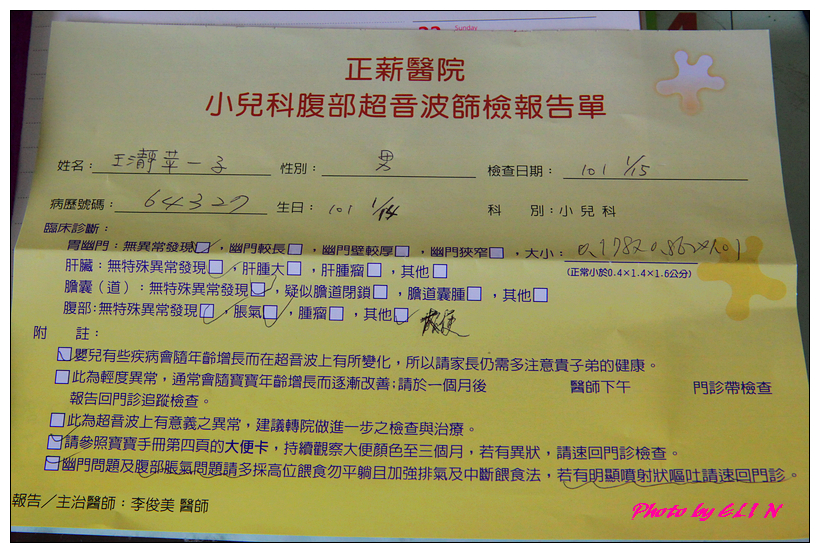 Sunday
正薪醫院
小兒科腹部超音波篩檢報告單
姓名： 王 一子 性別： 男 檢查日期： 101 1/15
病歷號碼： 64327 生日： 101 1/14 科 別：小兒科
臨床診斷：
胃幽門：無異常發現□，幽門較長□，幽門壁較厚□，幽門狹窄□，大小：
(正常小於0.4×1.4×1.6公分)
肝臟：無特殊異常發現□，肝腫大□，肝腫瘤□，其他□
膽囊（道）：無特殊異常發現□，疑似膽道閉鎖□，膽道囊腫□，其他□
腹部：無特殊異常發現□，脹氣□，腫瘤□，其他□
附 註：
□嬰兒有些疾病會隨年齡增長而在超音波上有所變化，所以請家長仍需多注意貴子弟的健康。
□此為輕度異常，通常會隨寶寶年齡增長而逐漸改善;請於一個月後 醫師下午 門診帶檢查
報告回門診追蹤檢查。
□此為超音波上有意義之異常，建議轉院做進一步之檢查與治療。
□請參照寶寶手冊第四頁的大便卡，持續觀察大便顏色至三個月，若有異狀，請速回門診檢查。
□幽門問題及腹部脹氣問題請多採高位餵食勿平躺且加強排氣及中斷餵食法，若有明顯噴射狀嘔吐請速回門診。
報告／主治醫師：李俊美 醫師
Photo by ELIN